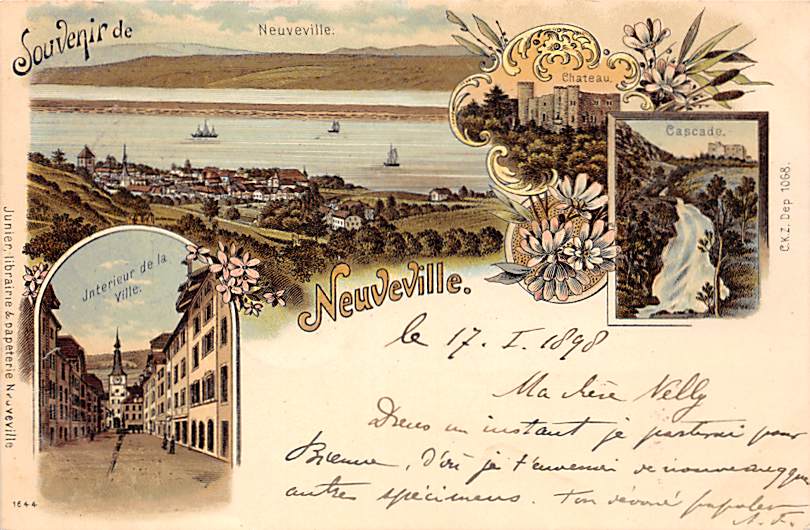 Souvenir de
Neuveville.
Chateau.
Cascade.
C.K.Z. Dep 1068.
Jnterieur de la
Ville.
Neuveville.
Junier, librairie & papeterie Neuveville
1644
le 17. I. 1898
Ma chère Nelly
Dans un instant je partirai pour
Bienne, d'où je t'enverrai de nouveau qq
autres spécimens. Ton dévoué